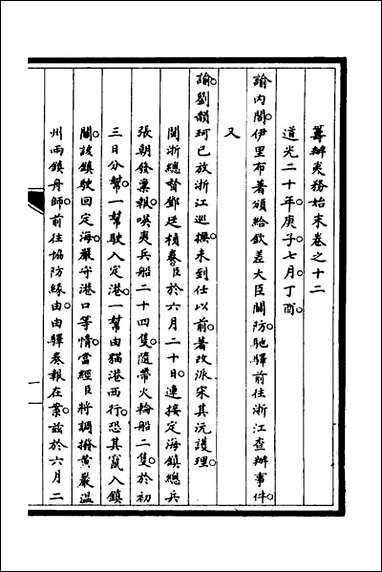 籌辦夷務始末卷之十二
道光二十年庚子七月丁酉
諭內閣伊里布著頒給欽差大臣關防馳驛前往浙江查辦事件
又
諭劉韻珂已放浙江巡撫未到任以前著改派宋其沅護理
閩浙總督鄧廷楨奏臣於六月二十日連接定海鎮總兵
張朝發稟報㗸夷兵船二十四隻隨帶火輪船二隻於初
三日分幫一幫駛入定港一幫由猫港西行恐其竄入鎮
關該鎮駛回定海嚴守港口等情當經臣將調撥黃嚴溫
州兩鎮舟師前往協防緣由由驛奏報在案茲於六月二
一